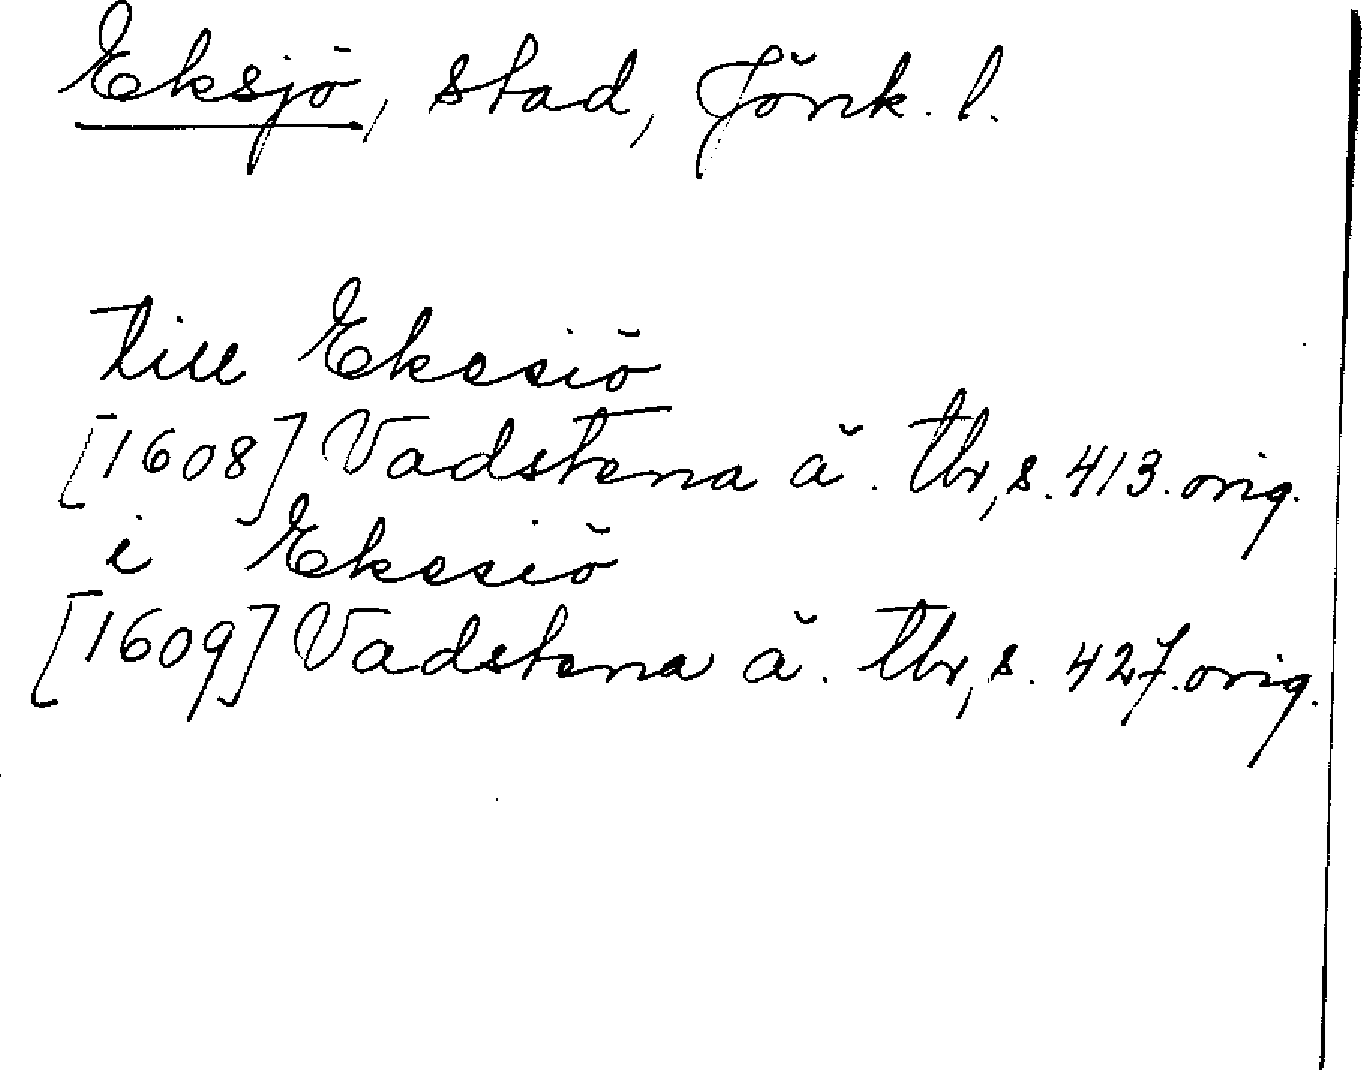 Eksjö, stad, Jönk. l.
till Ekesiö
[1608] Vadstena ä. tb, s. 413. orig.
i Ekesiö
[1609] Vadstena ä. tb, s. 427. orig.